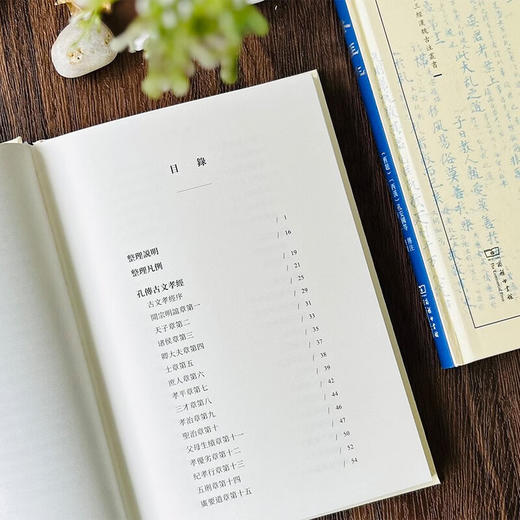 目錄
整理說明 / 1
整理凡例 / 16
孔傳古文孝經 / 19
古文孝經序 / 21
開宗明誼章第一 / 25
天子章第二 / 29
諸侯章第三 / 31
卿大夫章第四 / 33
士章第五 / 34
庶人章第六 / 35
孝平章第七 / 38
三才章第八 / 39
孝治章第九 / 42
聖治章第十 / 44
父母生績章第十一 / 46
孝優劣章第十二 / 47
紀孝行章第十三 / 50
五刑章第十四 / 52
廣要道章第十五 / 54
三經漢魏古注叢書
子曰教人親愛莫善
風易俗莫善
商務印書館